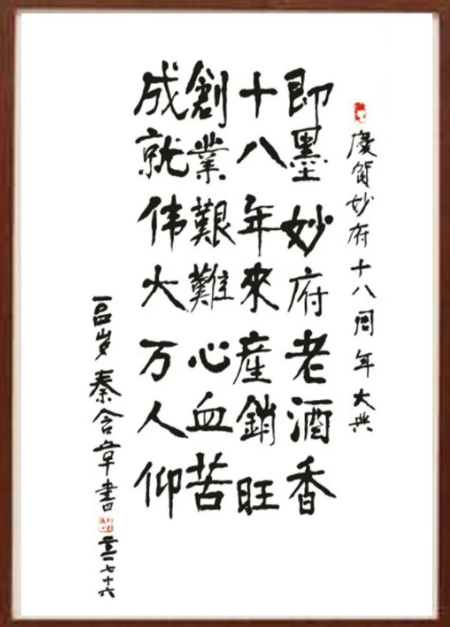 慶賀妙府十八周年大典
即墨妙府老酒香
十八年來產銷旺
創業艱難心血苦
成就伟大万人仰
岁秦含章書 七十六